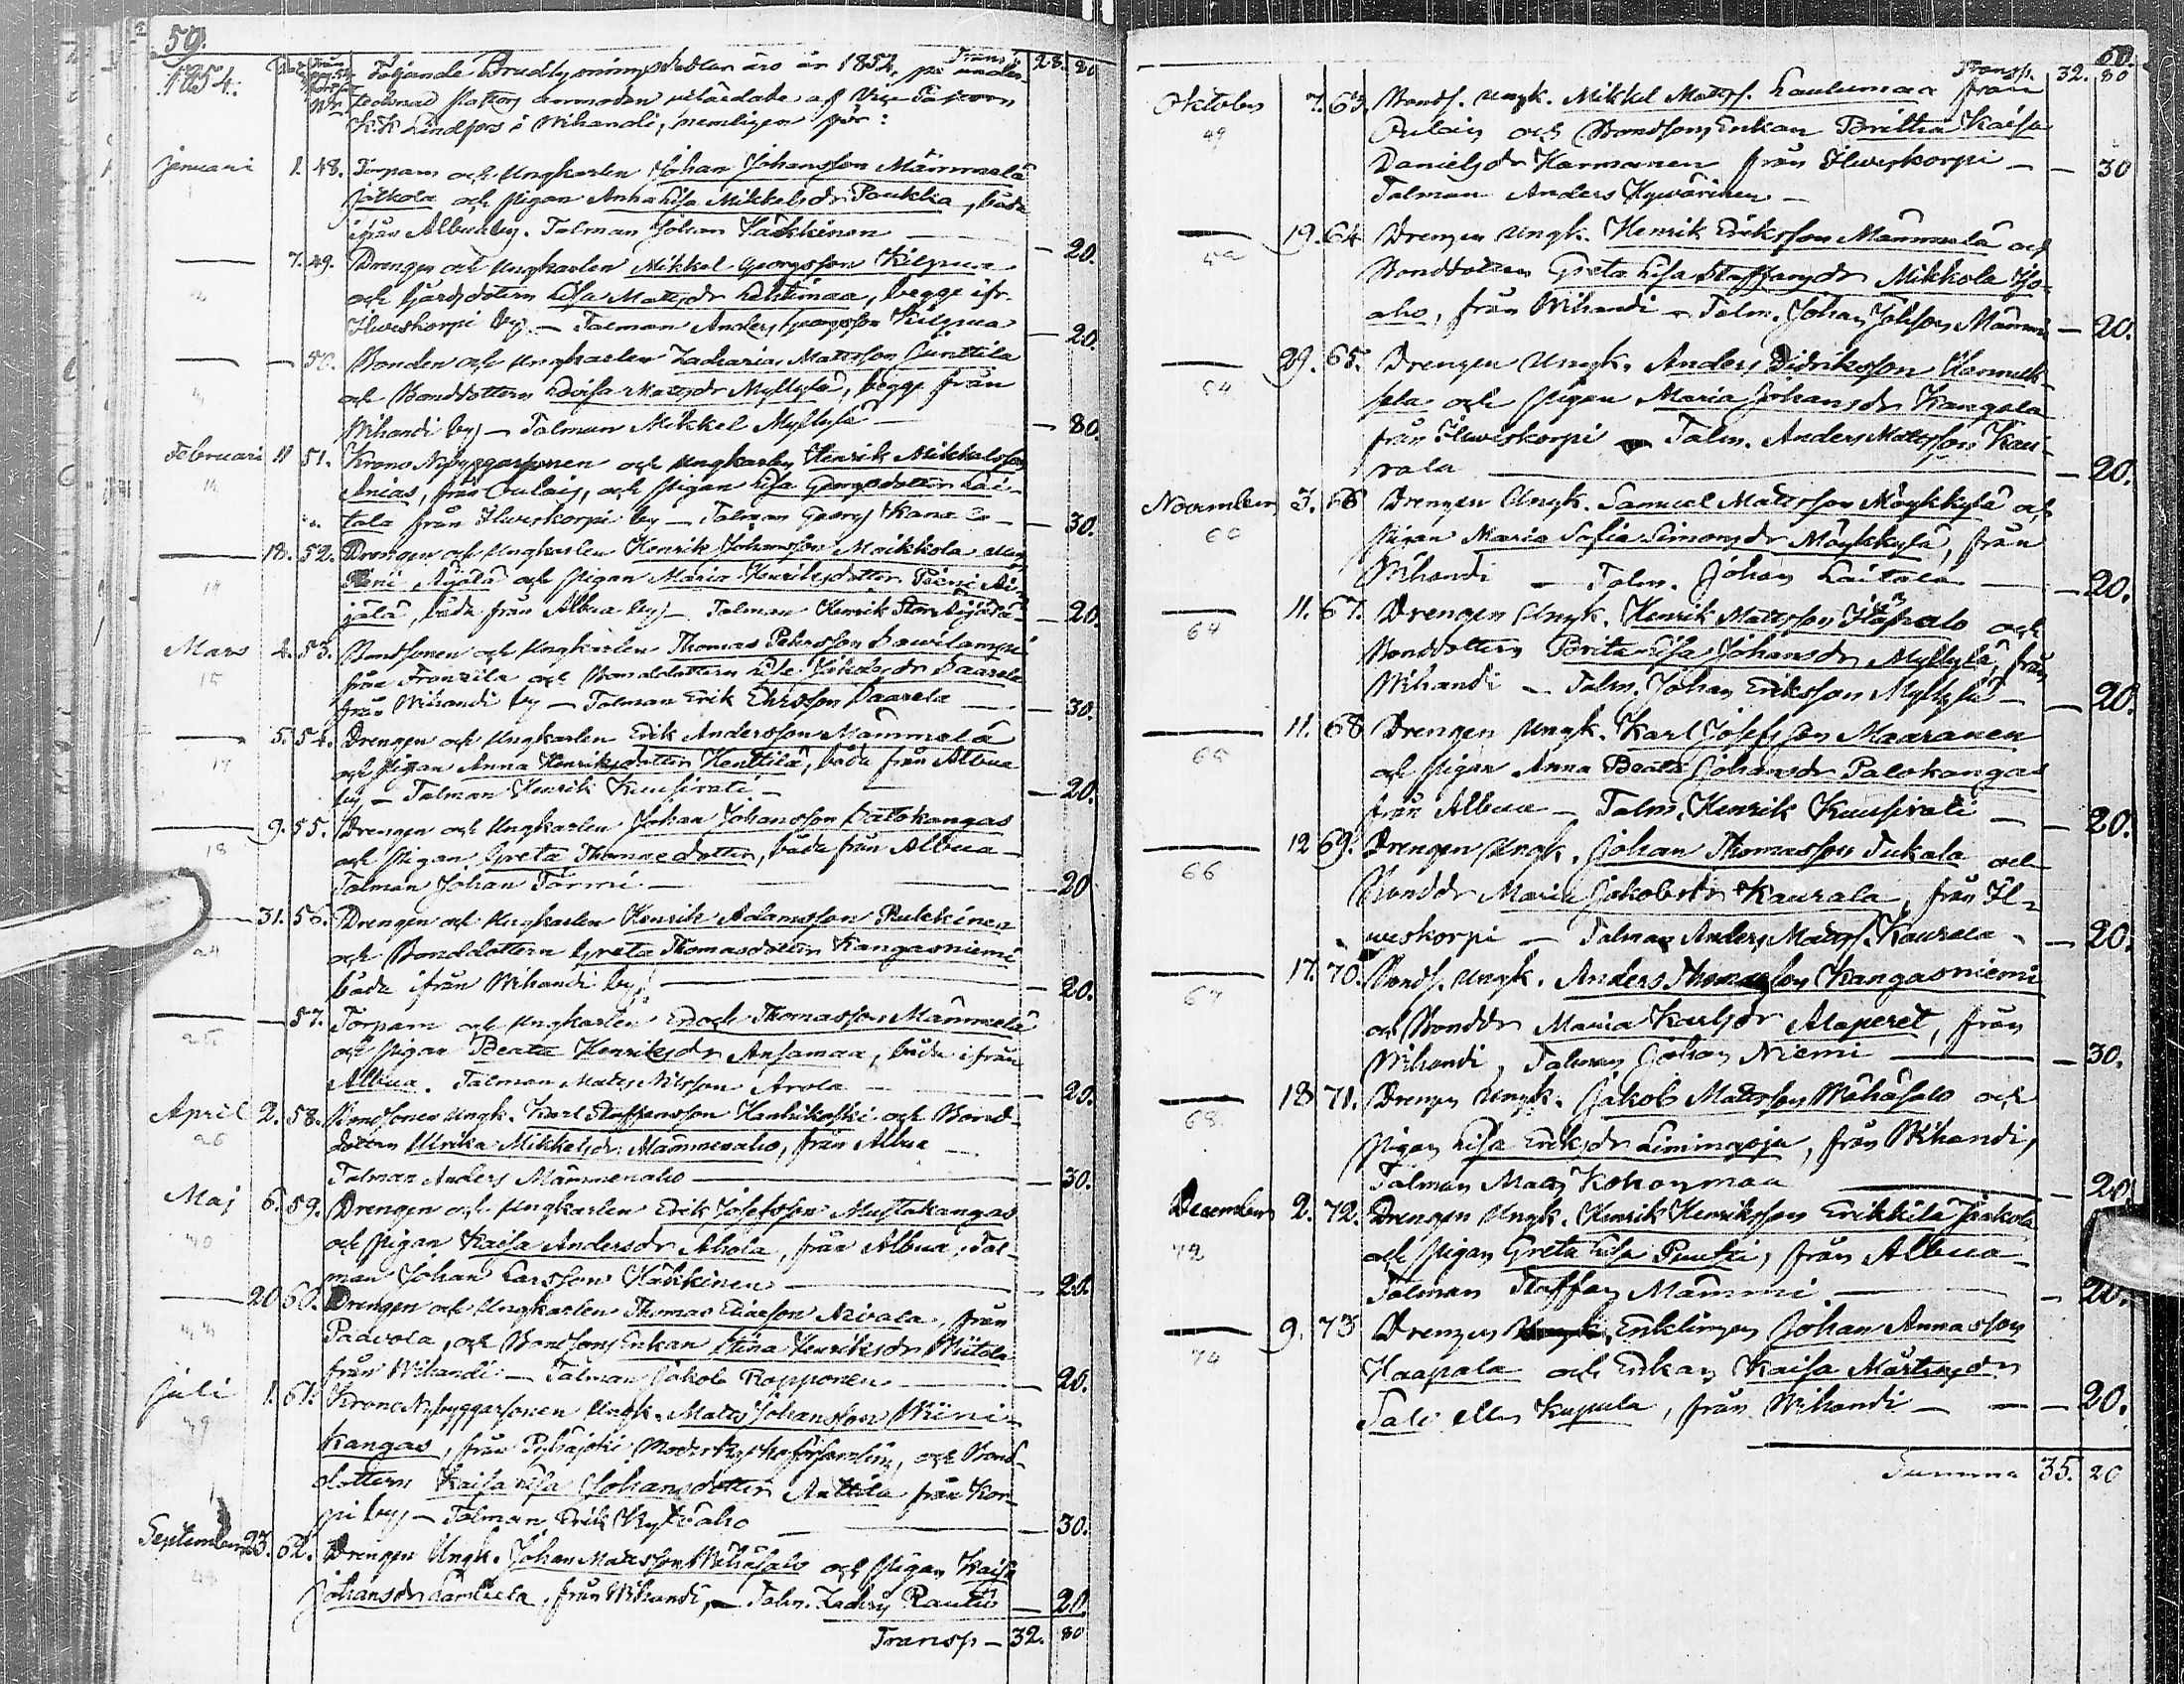 59.
1854. Följande Brudlysningssedlar äro år 1854, på under- Transp. 28. 80
tecknad
K. K. Lindfors i Wihandi, nemligen för:
Januari 1. 48. Torparn och Ungkarlen Johan Johansson Mämmelä
Jälkölä och Pigan Anna Lisa Mikkelsdr Paukka, båda
ifrån Albua by. Talman Johan Häkkinen — 20.
7. 49. Drengen och Ungkarlen Mikkel Georgsson Kilpua
och Lisa Matsdr Lehtimaa, begge ifr.
Ilweskorpi by. — Talman Anders Georgsson Kilpua — 20.
50. Bonden och Ungkarlen Zacharias Mattsson Junttila
och Bonddottern Lovisa Matsdr Myllylä, begge från
Wihandi by — Talman Mikkel Myllylä — 80.
Februari 11 51. Krono Nybyggarsonen och Ungkarlen Henrik Mikkelsson
Anias, från Oulais, och Pigan Lisa Georgsdotter Lai-
tala från Ilweskorpi by — Talman Georg — 30.
18. 52. Drengen och Ungkarlen Henrik Johansson Moikkola
Pieni Äijälä och Pigan Maria Henriksdotter Pieni Äi-
jälä, båda från Albua by — Talman Henrik Stor Äijälä — 20.
Mars 4. 53. Bondsonen och Ungkarlen Thomas Petersson Sawilampi
från Frantzila och Bonddottern Lisa Jakobsdr Saarela
från Wihandi by — Talman Erik Ericsson Saarela — 30.
17 5. 54. Drengen och Ungkarlen Erik Andersson Mämmelä
och Pigan Anna Henriksdotter Henttilä, båda från Albua
by, — Talman Henrik Kuusirati — 20.
18 9. 55. Drengen och Ungkarlen Johan Johansson Palokangas
och Pigan Greta Thomasdotter, båda från Albua —
Talman Johan Törmi — 20
24 31. 56. Drengen och Ungkarlen Henrik Adamsson Pulkkinen
och Bonddottern Greta Thomasdotter Kangasniemi
båda ifrån Wihandi by; — 20.
25 57. Torparn och Ungkarlen Enoch Thomasson Mämmelä
och Pigan Beata Henriksdr Ansamaa, båda ifrån
Albua. Talman Mats Nilsson Arola — 20.
April 26 2. 58. Bondsonen Ungk. Karl Staffansson Hanhikoski och Bond-
dottern Ulrika Mikkelsdr. Mämmenaho, från Albua —
Talman Anders Mämmenaho — 30.
Maj 40 6. 59. Drengen och Ungkarlen Erik Josefsson Mustakangas
och Pigan Kaisa Andersdr Ahola, från Albua, Tal-
man Johan Larsson Häkkinen — 20.
20 60. Drengen och Ungkarlen Thomas Nivala, från
Paavola, och Bondsons Enkan Stina Henriksdr Wiitala
från Wihandi — Talman Jakob Ropponen — 20.
Juli 49 1. 61. Krono Nybyggarsonen Ungk. Matts Johansson Wiini-
kangas, från Pyhäjoki Moderkyrkoförsamling, och Bond-
dottern Kaisa Lisa Johansdotter Anttila från Kor-
pi by — Talman Erik Kylväaho — 30.
September 23. 62. Drengen Ungk. Johan Matsson Wähäsalo och Pigan Kaisa
Johansdr, från Wihandi, — Talm. Zachris Rautio — 20.
Transp — 32. 80
60.
Transp. 32. 80
Oktober 49 7. 63. Bonds. Ungk. Mikkel Matss. Laulumaa från
Oulais och Bondsons Enkan Britha Kaisa
Danielsdr Karmanen från Ilweskorpi — — 30
Talman Anders Hyvärinen —
19. 64 Drengen Ungk. Henrik Eriksson Mämmelä och
Bonddottern Greta Lisa Staffansdr Mikkola
aho, från Wihandi — Talm. Johan Johsson Mämmi — 20.
54 29. 65. Drengen Ungk. Anders Didriksson
sela och Pigan Maria Johansdr Kangala
från Ilweskorpi — Talm. Anders Mattsson Kau-
rala — 20.
November 60 3. 66 Drengen Ungk. Samuel Mattsson Möykkylä och
Pigan Maria Sofia Simonsdr Möykkylä, från
Wihandi — Talm. Johan Laitala — 20.
64 11. 67. Drengen Ungk. Henrik Mattsson och
Bonddottern Brita Lisa Johansdr Myllylä, från
Wihandi — Talm. Johan Eriksson Myllylä — 20.
65 11. 68 Drengen Ungk. Karl Josefsson Maaranen
och Pigan Anna Beata Johansdr Palokangas
från Albua — Talm. Henrik Kuusirati — 20.
66 12 69. Drengen Ungk. Johan Thomasson Tukala och
Bonddr Maria Jakobsdr Kaurala, från Il-
weskorpi — Talman Anders Matss. Kaurala — 20.
67 17. 70. Bonds. Ungk. Anders Thomasson Kangasniemi
och Bonddr Maria Karlsdr Alaperet, från
Wihandi, Talman Johan Niemi — 30.
68. 18 71. Drengen Ungk. Jakob Mattsson Wähäsalo och
Pigan Lisa Eriksdr Liminoja, från Wihandi,
Talman Mats Kohonmaa — 20.
December 72 2. 72. Drengen Ungk. Henrik Henriksson Erikkilä Jaakola
och Pigan Greta Lisa Puuska, från Albua —
Talman Staffan Mämmi — 20.
74 9. 73 Drengen Enklingen Johan Annasson
Haapala och Enkan Kaisa Mårtensdr
Tali eller Kupula, från Wihandi — 20.
Summa 35. 20